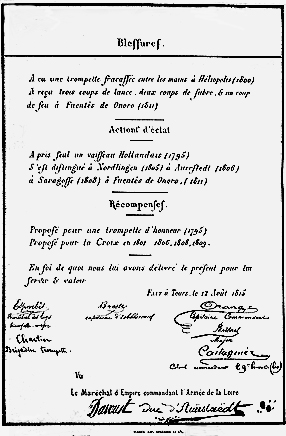 Blessures.
A eu une trompette fracassée entre les mains à Héliopolis (1800)
A reçu trois coups de lance, deux coups de sabre, & un coup
de feu à Fuentès de Onoro (1811)
Actions d'éclat
A pris seul un vaisseau Hollandais (1795)
S'est distingué à Nordlingen (1805) à Auerstedt (1806)
à Saragosse (1808) à Fuentès de Onoro, (1811)
Récompenses.
Proposé pour une trompette d'honneur (1795)
Proposé pour la Croix en 1801 1806, 1808, 1809.
En foi de quoi nous lui avons délivré le présent pour lui
servir & valoir
Fait à Tours, le 12 Août 1815
Capitaine Commandant
Major
Chartier
Brigadier Trompette
Castagnier
Vu
Le Maréchal d'Empire commandant l'Armée de la Loire
Davoust duc d'Auerstaedt